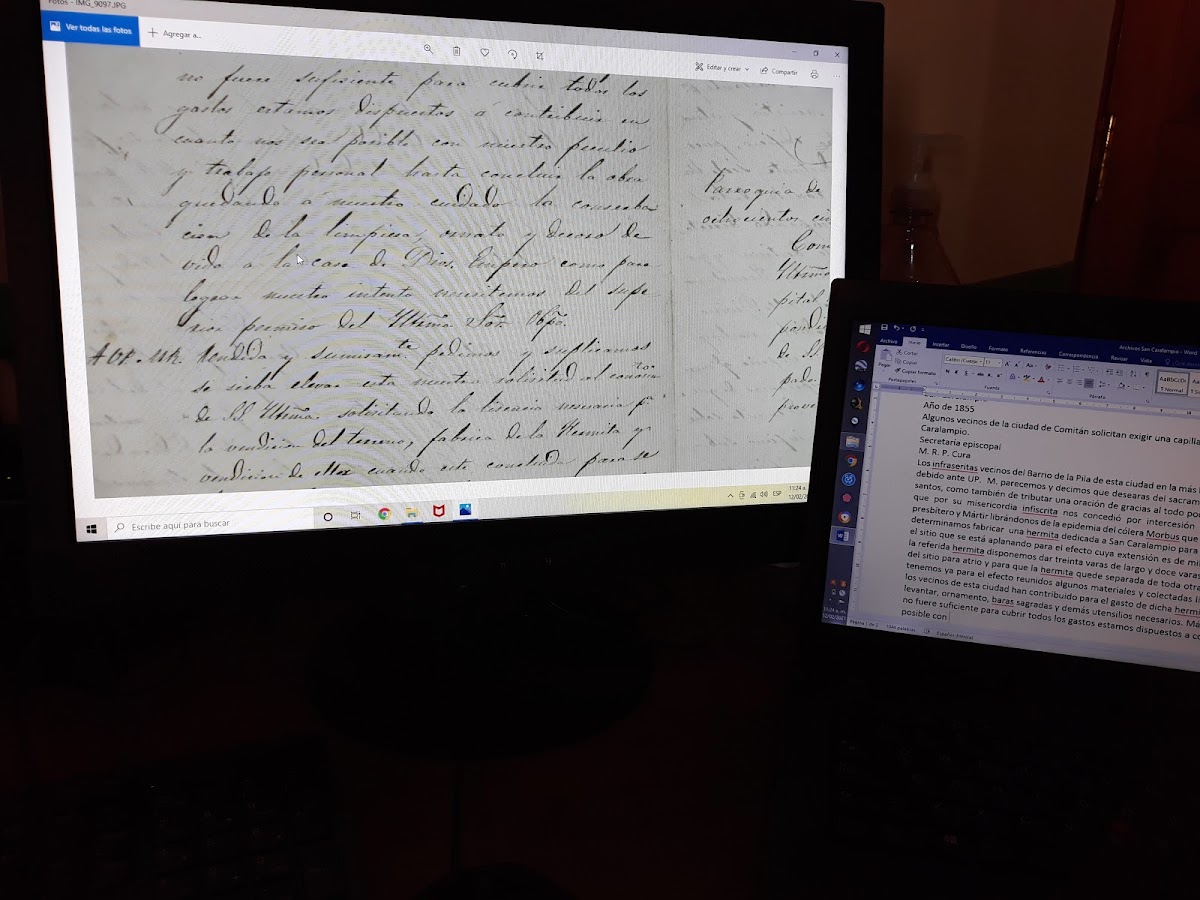 Fotos - IMG_9097.JPG
Ver todas las fotos
Agregar a...
Editar y crear
Compartir
no fuere sufisiente para cubrir todos los
gastos estamos dispuestos á contribuir en
cuanto nos sea posible con nuestro peculio
y trabajo personal hasta concluir la obra
quedando á nuestro cuidado la conserba
cion de la limpiesa, ornato y decoro de
vido a la casa de Dios. Empero como para
lograr nuestro intento necesitemos del supe
rior permiso del Ultmo. Sor. Obpo.
A UP. MR. Rendida y sumisamte. pedimos y suplicamos
se sirba elevar esta nuestra solicitud al
de S.S. solicitando la lisencia nesesaria pa
la vendicion del terreno, fabrica de la Hermita y
vendicion de ella cuando esté concluida para se
Parroquia de
ochocientos
Com
pital
de S.
pado
prove
Escribe aquí para buscar
ESP
11:24 a.
12/02/
Archivos San Caralampio - Word
Archivo
Inicio
Insertar
Diseño
Formato
Referencias
Correspondencia
Revisar
Vista
Pegar
Cortar
Copiar
Copiar formato
Portapapeles
Calibri (Cuerpo)
11
Fuente
Párrafo
AaBbCcDc
¶ Normal
Año de 1855
Algunos vecinos de la ciudad de Comitán solicitan exigir una capilla
Caralampio.
Secretaría episcopal
M. R. P. Cura
Los infraseritas vecinos del Barrio de la Pila de esta ciudad en la más
debido ante UP. M. parecemos y decimos que desearas del sacram
santos, como también de tributar una oración de gracias al todo pod
que por su misericordia infiscrita nos concedió por intercesión
presbitero y Mártir librándonos de la epidemia del cólera Morbus que
determinamos fabricar una hermita dedicada a San Caralampio para
el sitio que se está aplanando para el efecto cuya extensión es de mil
la referida hermita disponemos dar treinta varas de largo y doce varas
del sitio para atrio y para que la hermita quede separada de toda otra
tenemos ya para el efecto reunidos algunos materiales y colectadas li
los vecinos de esta ciudad han contribuido para el gasto de dicha hermi
levantar, ornamento, baras sagradas y demás utensilios necesarios. Má
no fuere suficiente para cubrir todos los gastos estamos dispuestos a co
posible con
Página 1 de 2
1046 palabras
Español (México)
11:24 a. m.
12/02/2021